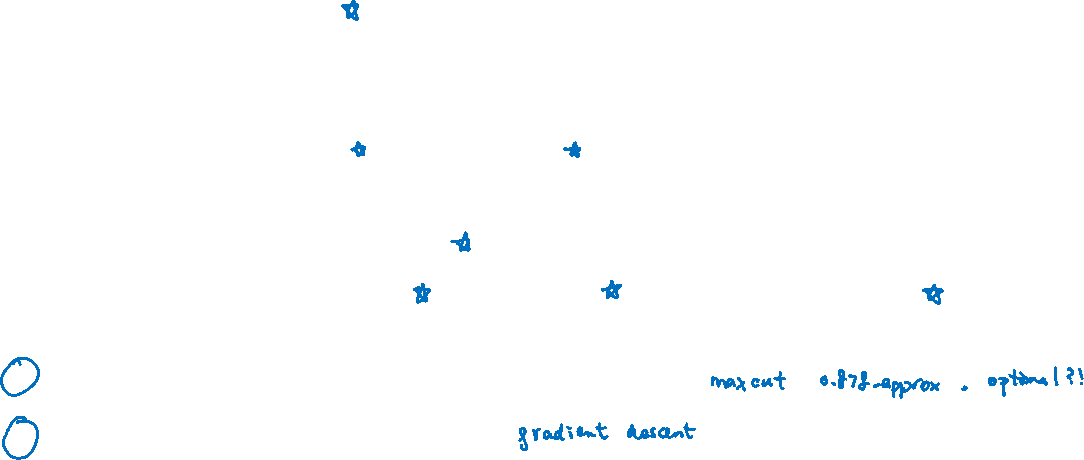 maxcut 0.878-approx. optimal?!
gradient descent